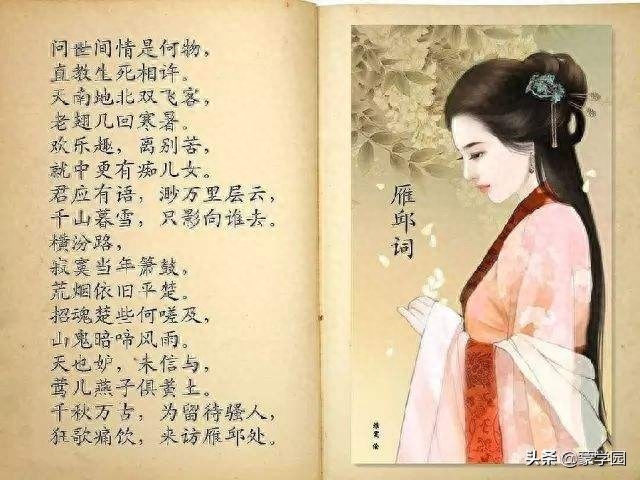 问世间情是何物，
直教生死相许。
天南地北双飞客，
老翅几回寒暑。
欢乐趣，离别苦，
就中更有痴儿女。
君应有语，渺万里层云，
千山暮雪，只影向谁去。
横汾路，
寂寞当年箫鼓，
荒烟依旧平楚。
招魂楚些何嗟及，
山鬼暗啼风雨。
天也妒，未信与，
莺儿燕子俱黄土。
千秋万古，为留待骚人，
狂歌痛饮，来访雁邱处。
雁邱词
头条 @蒙学园